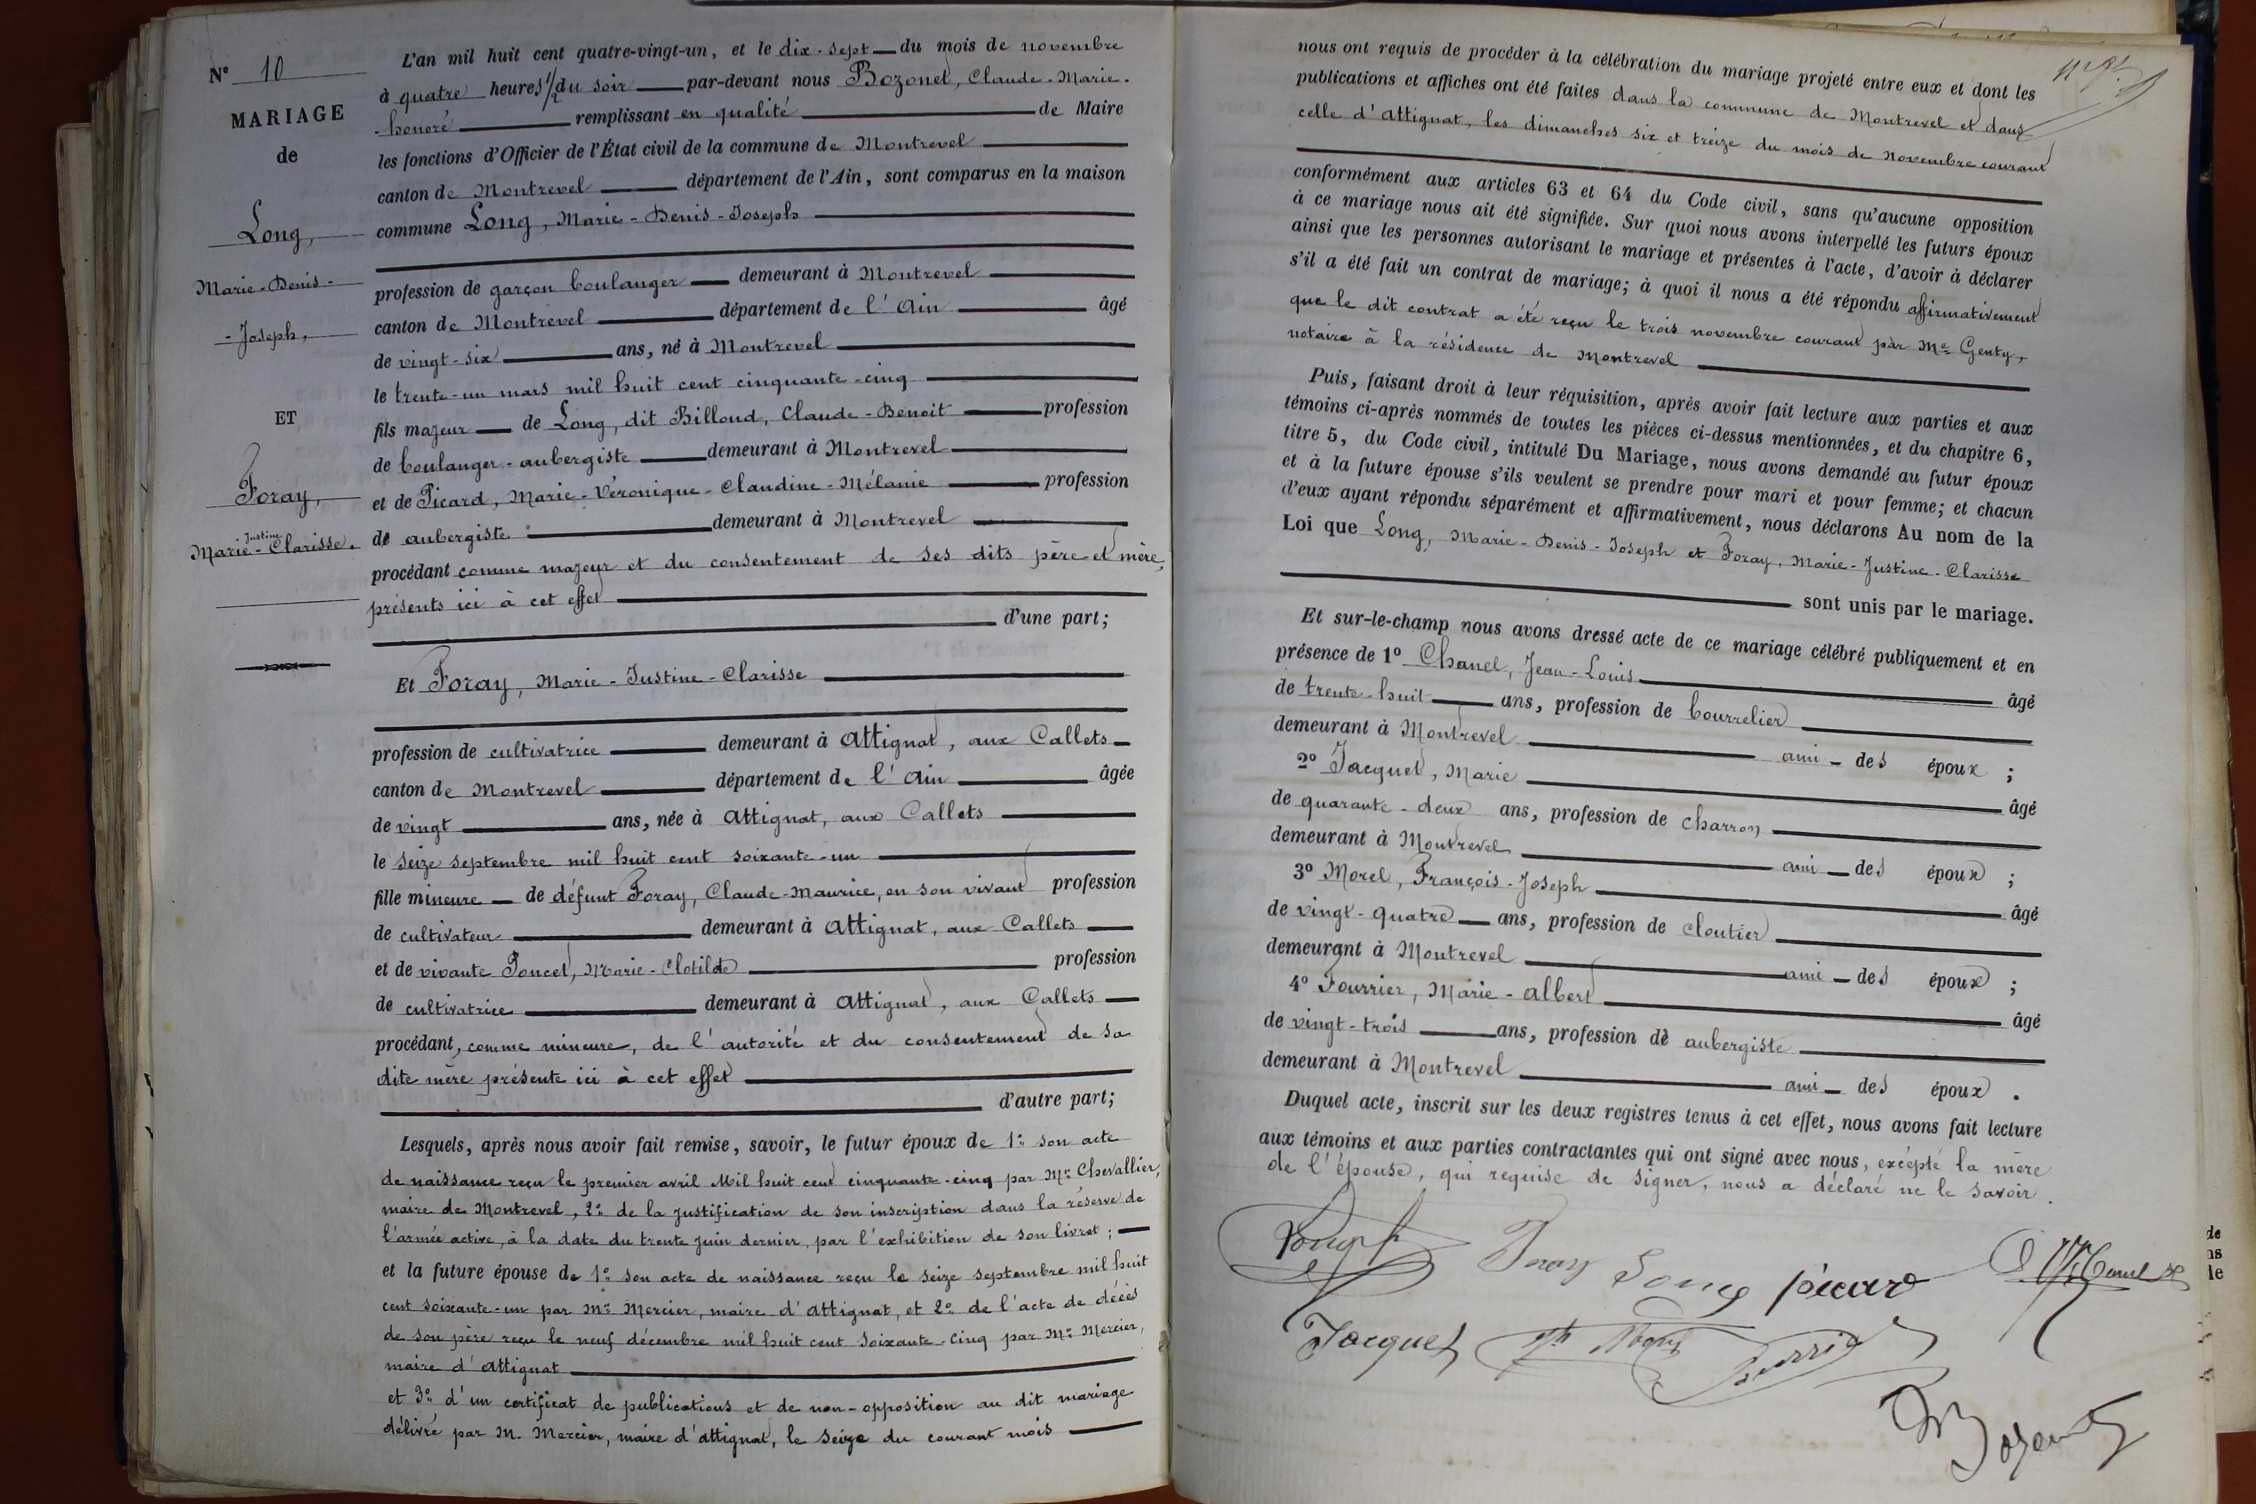 N° 10
MARIAGE
de
Long,
Marie-Denis-
-Joseph,
ET
Foray,
Justine
Marie-Clarisse.
L'an mil huit cent quatre-vingt-un, et le dix-sept du mois de novembre
à quatre heures 1/2 du soir par-devant nous Bozonet, Claude-Marie-
-honoré remplissant en qualité de Maire
les fonctions d'Officier de l'État civil de la commune de Montrevel
canton de Montrevel département de l'Ain, sont comparus en la maison
commune Long, Marie-Denis-Joseph
profession de garçon boulanger demeurant à Montrevel
canton de Montrevel département de l'Ain âgé
de vingt-six ans, né à Montrevel
le trente-un mars mil huit cent cinquante-cinq
fils majeur de Long, dit Billoud, Claude-Benoit profession
de boulanger-aubergiste demeurant à Montrevel
et de Picard, Marie-Véronique-Claudine-Mélanie profession
de aubergiste demeurant à Montrevel
procédant comme majeur et du consentement de ses dits père et mère,
présents ici à cet effet
d'une part;
Et Foray, Marie-Justine-Clarisse
profession de cultivatrice demeurant à Attignat, aux Callets
canton de Montrevel département de l'Ain âgée
de vingt ans, née à Attignat, aux Callets
le seize septembre mil huit cent soixante-un
fille mineure de défunt Foray, Claude-Maurice, en son vivant profession
de cultivateur demeurant à Attignat, aux Callets
et de vivante Poncet, Marie-Clotilde profession
de cultivatrice demeurant à Attignat, aux Callets
procédant, comme mineure, de l'autorité et du consentement de sa
dite mère présente ici à cet effet
d'autre part;
Lesquels, après nous avoir fait remise, savoir, le futur époux de 1° son acte
de naissance reçu le premier avril Mil huit cent cinquante-cinq par Mr Chevallier,
maire de Montrevel, 2° de la justification de son inscription dans la réserve de
l'armée active, à la date du trente juin dernier, par l'exhibition de son livret;
et la future épouse de 1° son acte de naissance reçu le seize septembre mil huit
cent soixante-un par Mr Mercier, maire d'Attignat, et 2° de l'acte de décès
de son père reçu le neuf décembre mil huit cent soixante-cinq par Mr Mercier,
maire d'Attignat
et 3° d'un certificat de publications et de non-opposition au dit mariage
délivré par M. Mercier, maire d'Attignat, le seize du courant mois
nous ont requis de procéder à la célébration du mariage projeté entre eux et dont les
publications et affiches ont été faites dans la commune de Montrevel et dans
celle d'Attignat, les dimanches six et treize du mois de Novembre courant
conformément aux articles 63 et 64 du Code civil, sans qu'aucune opposition
à ce mariage nous ait été signifiée. Sur quoi nous avons interpellé les futurs époux
ainsi que les personnes autorisant le mariage et présentes à l'acte, d'avoir à déclarer
s'il a été fait un contrat de mariage; à quoi il nous a été répondu affirmativement
que le dit contrat a été reçu le trois novembre courant par Me Genty,
notaire à la résidence de Montrevel
Puis, faisant droit à leur réquisition, après avoir fait lecture aux parties et aux
témoins ci-après nommés de toutes les pièces ci-dessus mentionnées, et du chapitre 6,
titre 5, du Code civil, intitulé Du Mariage, nous avons demandé au futur époux
et à la future épouse s'ils veulent se prendre pour mari et pour femme; et chacun
d'eux ayant répondu séparément et affirmativement, nous déclarons Au nom de la
Loi que Long, Marie-Denis-Joseph et Foray, Marie-Justine-Clarisse
sont unis par le mariage.
Et sur-le-champ nous avons dressé acte de ce mariage célébré publiquement et en
présence de 1° Chanel, Jean-Louis âgé
de trente-huit ans, profession de bourrelier
demeurant à Montrevel ami des époux ;
2° Jacquet, Marie âgé
de quarante-deux ans, profession de charron
demeurant à Montrevel ami des époux ;
3° Morel, François-Joseph âgé
de vingt-quatre ans, profession de cloutier
demeurant à Montrevel ami des époux ;
4° Fourrier, Marie-Albert âgé
de vingt-trois ans, profession de aubergiste
demeurant à Montrevel ami des époux .
Duquel acte, inscrit sur les deux registres tenus à cet effet, nous avons fait lecture
aux témoins et aux parties contractantes qui ont signé avec nous, excépté la mère
de l'épouse, qui requise de signer, nous a déclaré ne le savoir.
Foray Long picard
Jacquet
Bozonet
de
ns
le